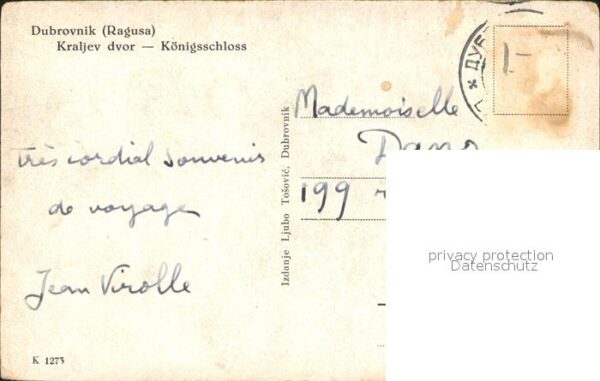 Dubrovnik (Ragusa)
Kraljev dvor — Königsschloss
très cordial souvenir
de voyage
Jean Virolle
K 1273
Izdanje Ljubo Tošović, Dubrovnik
ДУБ
Mademoiselle
Dano
199
privacy protection
Datenschutz